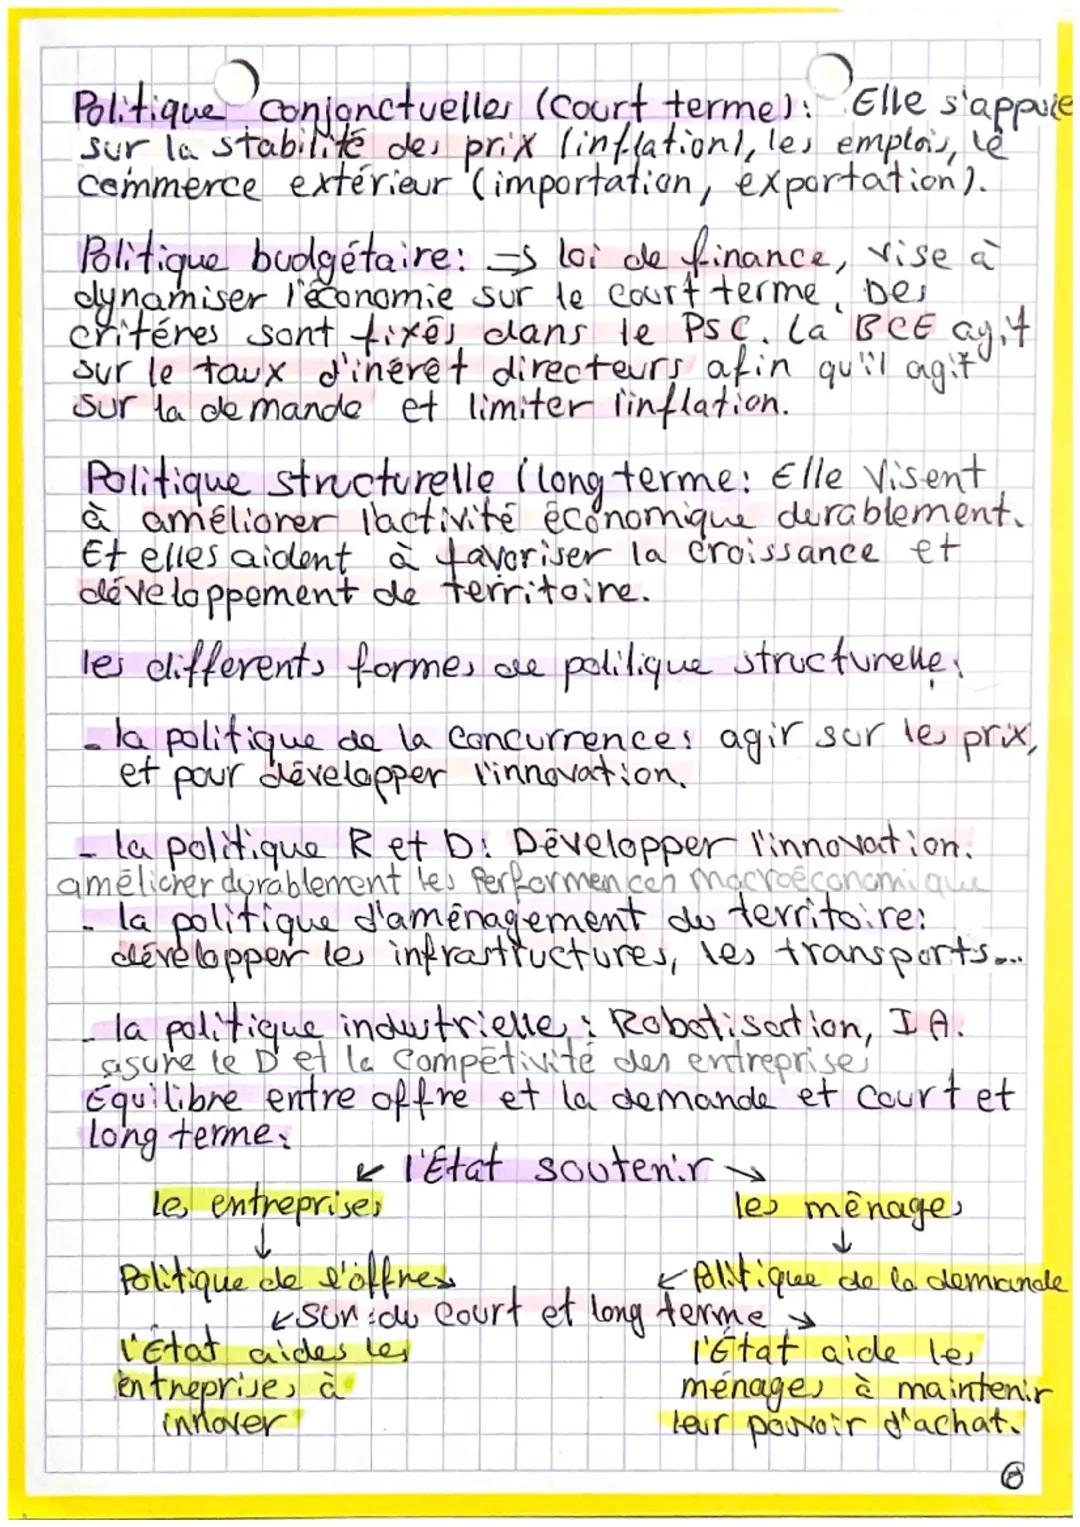 Politique conjonctuelles (court terme): Elle s'appuie
sur la stabilité des prix (inflation), les emplois, le
commerce extérieur (importation, exportation).
Politique budgétaire: => loi de finance, vise à
dynamiser l'économie sur le court terme. Des
critéres sont fixés dans le PSC. La BCE agit
sur le taux d'inérêt directeurs afin qu'il agit
sur la demande et limiter l'inflation.
Politique structurelle (long terme: Elle visent
à améliorer l'activité économique durablement.
Et elles aident à favoriser la croissance et
développement de territoire.
les differents formes de polilique structurelle:
- la politique de la concurrences: agir sur les prix,
et pour développer l'innovation.
- la politique R et D: Développer l'innovation.
améliorer durablement les performences macroéconomique
- la politique d'aménagement du territoire:
développer les infrastructures, les transports...
- la politique industrielle: Robotisation, IA.
assure le D et la compétivité des entreprises
Équilibre entre offre et la demande et court et
long terme:
↙ l'État soutenir ↘
les entreprises les ménages
↓ ↓
Politique de l'offres ↙ Politique de la demande
↙ sur: du court et long terme ↘
l'État aides les l'État aide les
entreprises à ménages à maintenir
innover leur pouvoir d'achat.